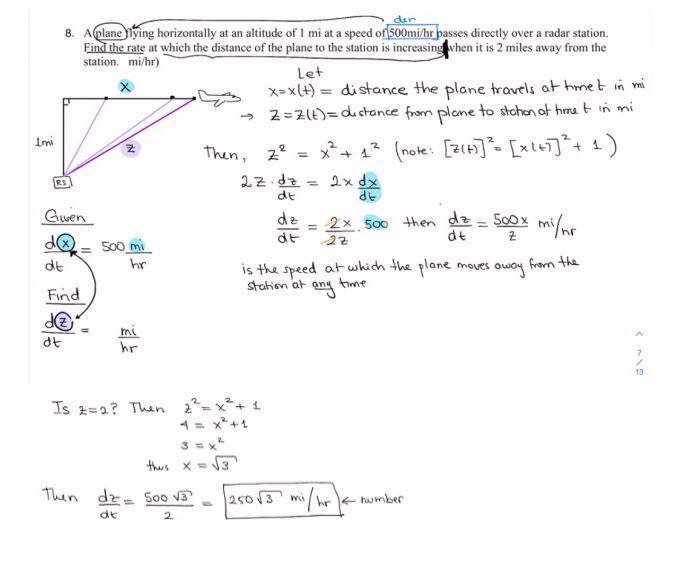 der
8. A plane flying horizontally at an altitude of 1 mi at a speed of 500mi/hr passes directly over a radar station.
Find the rate at which the distance of the plane to the station is increasing when it is 2 miles away from the
station. mi/hr)
Let
x=x(t) = distance the plane travels at time t in mi
→ z=z(t)= distance from plane to station at time t in mi
x
1mi
z
RS
Then, z² = x² + 1² (note: [z(t)]² = [x(t)]² + 1)
2z · dz/dt = 2x dx/dt
dz/dt = 2x/2z · 500 then dz/dt = 500x/z mi/hr
is the speed at which the plane moves away from the
station at any time
Given
d(x)/dt = 500 mi/hr
Find
d(z)/dt = mi/hr
7
/
13
Is z=2? Then z² = x² + 1
4 = x² + 1
3 = x²
thus x = √3
Then dz/dt = 500√3/2 = 250√3 mi/hr ← number